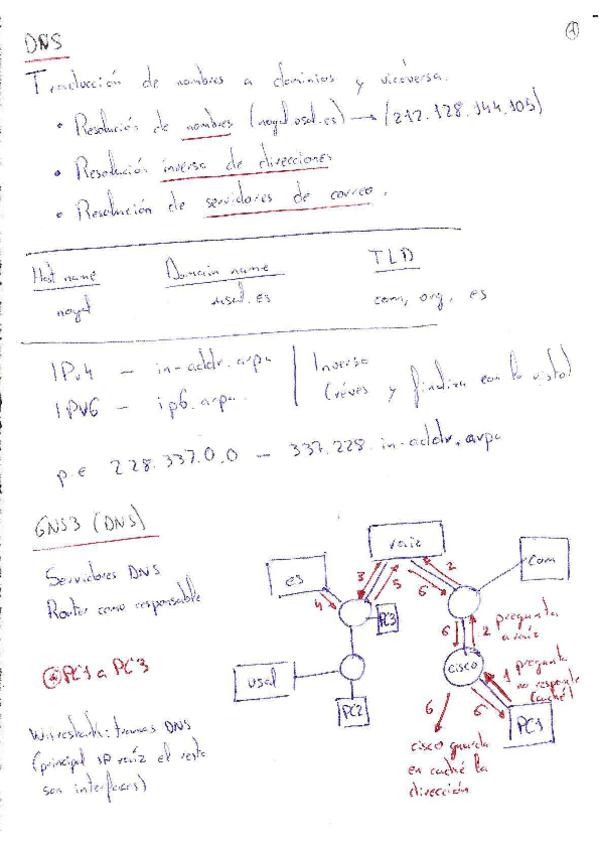 1
DNS
Traducción de nombres a dominios y viceversa.
• Resolución de nombres (nogal.usal.es) → (212.128.144.105)
• Resolución inversa de direcciones
• Resolución de servidores de correo.
Host name Domain name TLD
nogal usal.es com, org, es
IPv4 - in-addr.arpa | Inverso
IPv6 - ip6.arpa. | (revés y finaliza con lo visto)
p.e 228.337.0.0 - 337.228.in-addr.arpa
GNS3 (DNS)
Servidores DNS
Router como responsable
PC1 a PC3
Wireshark: tramas DNS
(principal IP raíz el resto
son interfaces)
raiz
es
com
3
5
2
6
4
PC3
6
2 pregunta
a raiz
usal
cisco
1 pregunta
no responde
(caché)
PC2
6
6
PC1
cisco guarda
en caché la
dirección